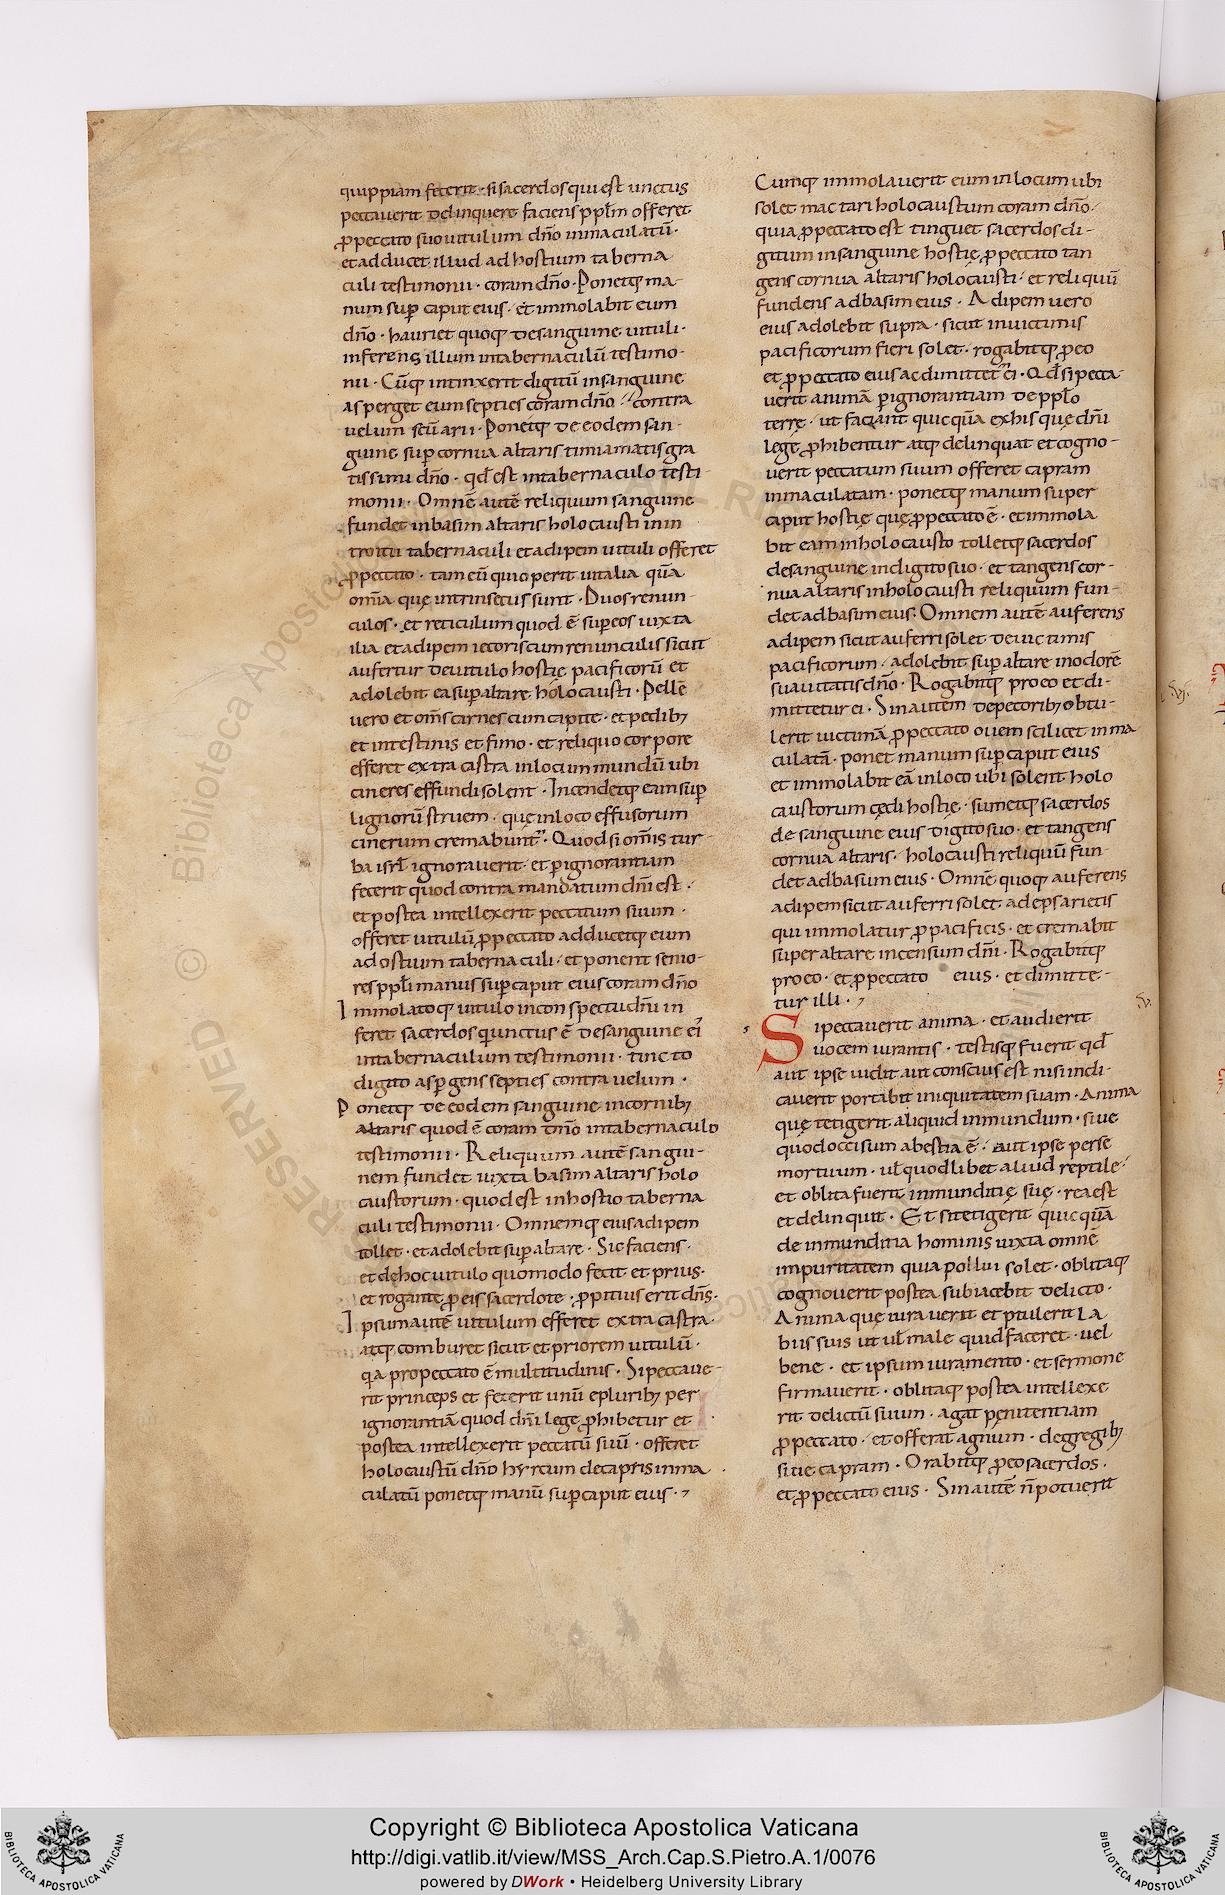 quippiam fecerit · si sacerdos qui est unctus
peccaverit delinquere faciens pplm̄ offeret
p̱ peccato suo vitulum dn̄o inmaculatū ·
et adducet illud ad hostium taberna
culi testimonii · coram dn̄o · Ponetq; ma-
num sup̱ caput eius · et immolabit eum
dn̄o · hauriet quoq; de sanguine vituli ·
inferens illum in tabernaculū testimo-
nii · Cūq; intinxerit digitū in sanguine
asperget eum septies coram dn̄o · contra
velum sc̄uarii · Ponetq; de eodem san-
guine sup̱ cornua altaris timiamatis gra
tissimi dn̄o · qd̄ est in tabernaculo testi-
monii · Omnē autē reliquum sanguine
fundet in basim altaris holocausti in in
troitu tabernaculi et adipem vituli offeret
p̱ peccato · tam eū qui operit vitalia quā
om̄ia quę intrinsecus sunt · Duos renun-
culos · et reticulum quod ē sup̱ eos iuxta
ilia et adipem iecoris cum renunculis sicut
aufertur de vitulo hostię pacificorū et
adolebit ea sup̱ altare holocausti · Pellē
vero et om̄s carnes cum capite · et pedib;
et intestinis et fimo · et reliquo corpore
efferet extra castra in locum mundū ubi
cineres effundi solent · Incendetq; eam sup̱
lignorū struem · quę in loco effusorum
cinerum cremabunt̄ · Quod si om̄is tur-
ba isrl̄ ignoraverit · et p̱ ignorantiam
fecerit quod contra mandatum dn̄i est ·
et postea intellexerit peccatum suum ·
offeret vitulū p̱ peccato adducetq; eum
ad ostium tabernaculi · et ponent senio-
res ppl̄i manus sup̱ caput eius coram dn̄o
Immolatoq; vitulo in conspectu dn̄i in
feret sacerdos qui unctus ē de sanguine ei
in tabernaculum testimonii · tincto
digito asp̱gens septies contra velum ·
Ponetq; de eodem sanguine in cornib;
altaris quod ē coram dn̄o in tabernaculo
testimonii · Reliquum autē sangui-
nem fundet iuxta basim altaris holo
caustorum · quod est in hostio taberna
culi testimonii · Omnemq; eius adipem
tollet · et adolebit sup̱ altare · Sic faciens ·
et de hoc vitulo quomodo fecit et prius ·
et rogante p̱ eis sacerdote · p̱pitius erit dn̄s ·
Ipsum autē vitulum efferet extra castra ·
atq; comburet sicut et priorem vitulū ·
q̇a pro peccato ē multitudinis · Si peccave-
rit princeps et fecerit unū e plurib; per
ignorantiā quod dn̄i lege p̱hibetur et
postea intellexerit peccatū suū · offeret
holocaustū dn̄o hyrcum de capris inma
culatū ponetq; manū sup̱ caput eius ·
Cumq; immolaverit eum in locum ubi
solet mactari holocaustum coram dn̄o ·
quia p̱ peccato est tinguet sacerdos di-
gitum in sanguine hostię p̱ peccato tan
gens cornua altaris holocausti · et reliquū
fundens ad basim eius · Adipem vero
eius adolebit supra · sicut in victimis
pacificorum fieri solet · rogabitq; p̱ eo
et p̱ peccato eius ac dimittet̄ ei · Qd̄ si pecca-
verit animā p̱ ignorantiam de ppl̄o
terrę · ut faciant quicquā ex his quę dn̄i
lege p̱hibentur atq; delinquat et cogno-
verit peccatum suum offeret capram
inmaculatam · ponetq; manum super
caput hostię quę p̱ peccato ē · et immola
bit eam in holocausto tolletq; sacerdos
de sanguine in digito suo · et tangens cor-
nua altaris in holocausti reliquum fun-
det ad basim eius · Omnem autē auferens
adipem sicut auferri solet de victimis
pacificorum · adolebit sup̱ altare in odorē
suavitatis dn̄o · Rogabitq; pro eo et di-
mittetur ei · Sin autem de pecorib; obtu-
lerit victimā p̱ peccato ovem scilicet inma
culatā · ponet manum sup̱ caput eius
et immolabit eā in loco ubi solent holo
caustorum cędi hostię · sumetq; sacerdos
de sanguine eius digito suo · et tangens
cornua altaris · holocausti reliquū fun-
det ad basim eius · Omnē quoq; auferens
adipem sicut auferri solet adeps arietis
qui immolatur p̱ pacificis · et cremabit
super altare incensum dn̄i · Rogabitq;
pro eo · et p̱ peccato eius · et dimitte-
tur illi ·
v.
Si peccaverit anima · et audierit
vocem iurantis · testisq; fuerit qd̄
aut ipse vidit aut conscius est nisi indi-
caverit portabit iniquitatem suam · Anima
quę tetigerit aliquid inmundum · sive
quod occisum a bestia ē · aut ipse per se
mortuum · vl̄ quodlibet aliud reptile ·
et oblita fuerit inmunditię suę · rea est
et delinquit · Et si tetigerit quicquā
de inmunditia hominis iuxta omnē
impuritatem qua pollui solet · oblitaq;
cognoverit postea subiacebit delicto ·
Anima quę iuraverit et p̱tulerit la
biis suis ut vl̄ male quid faceret · vel
bene · et ipsum iuramento · et sermone
firmaverit · oblitaq; postea intellexe
rit delictū suum · agat penitentiam
p̱ peccato · et offerat agnum · de gregib;
sive capram · Orabitq; p̱ eo sacerdos ·
et p̱ peccato eius · Sin autē n̄ potuerit
Copyright © Biblioteca Apostolica Vaticana
http://digi.vatlib.it/view/MSS_Arch.Cap.S.Pietro.A.1/0076
powered by DWork • Heidelberg University Library